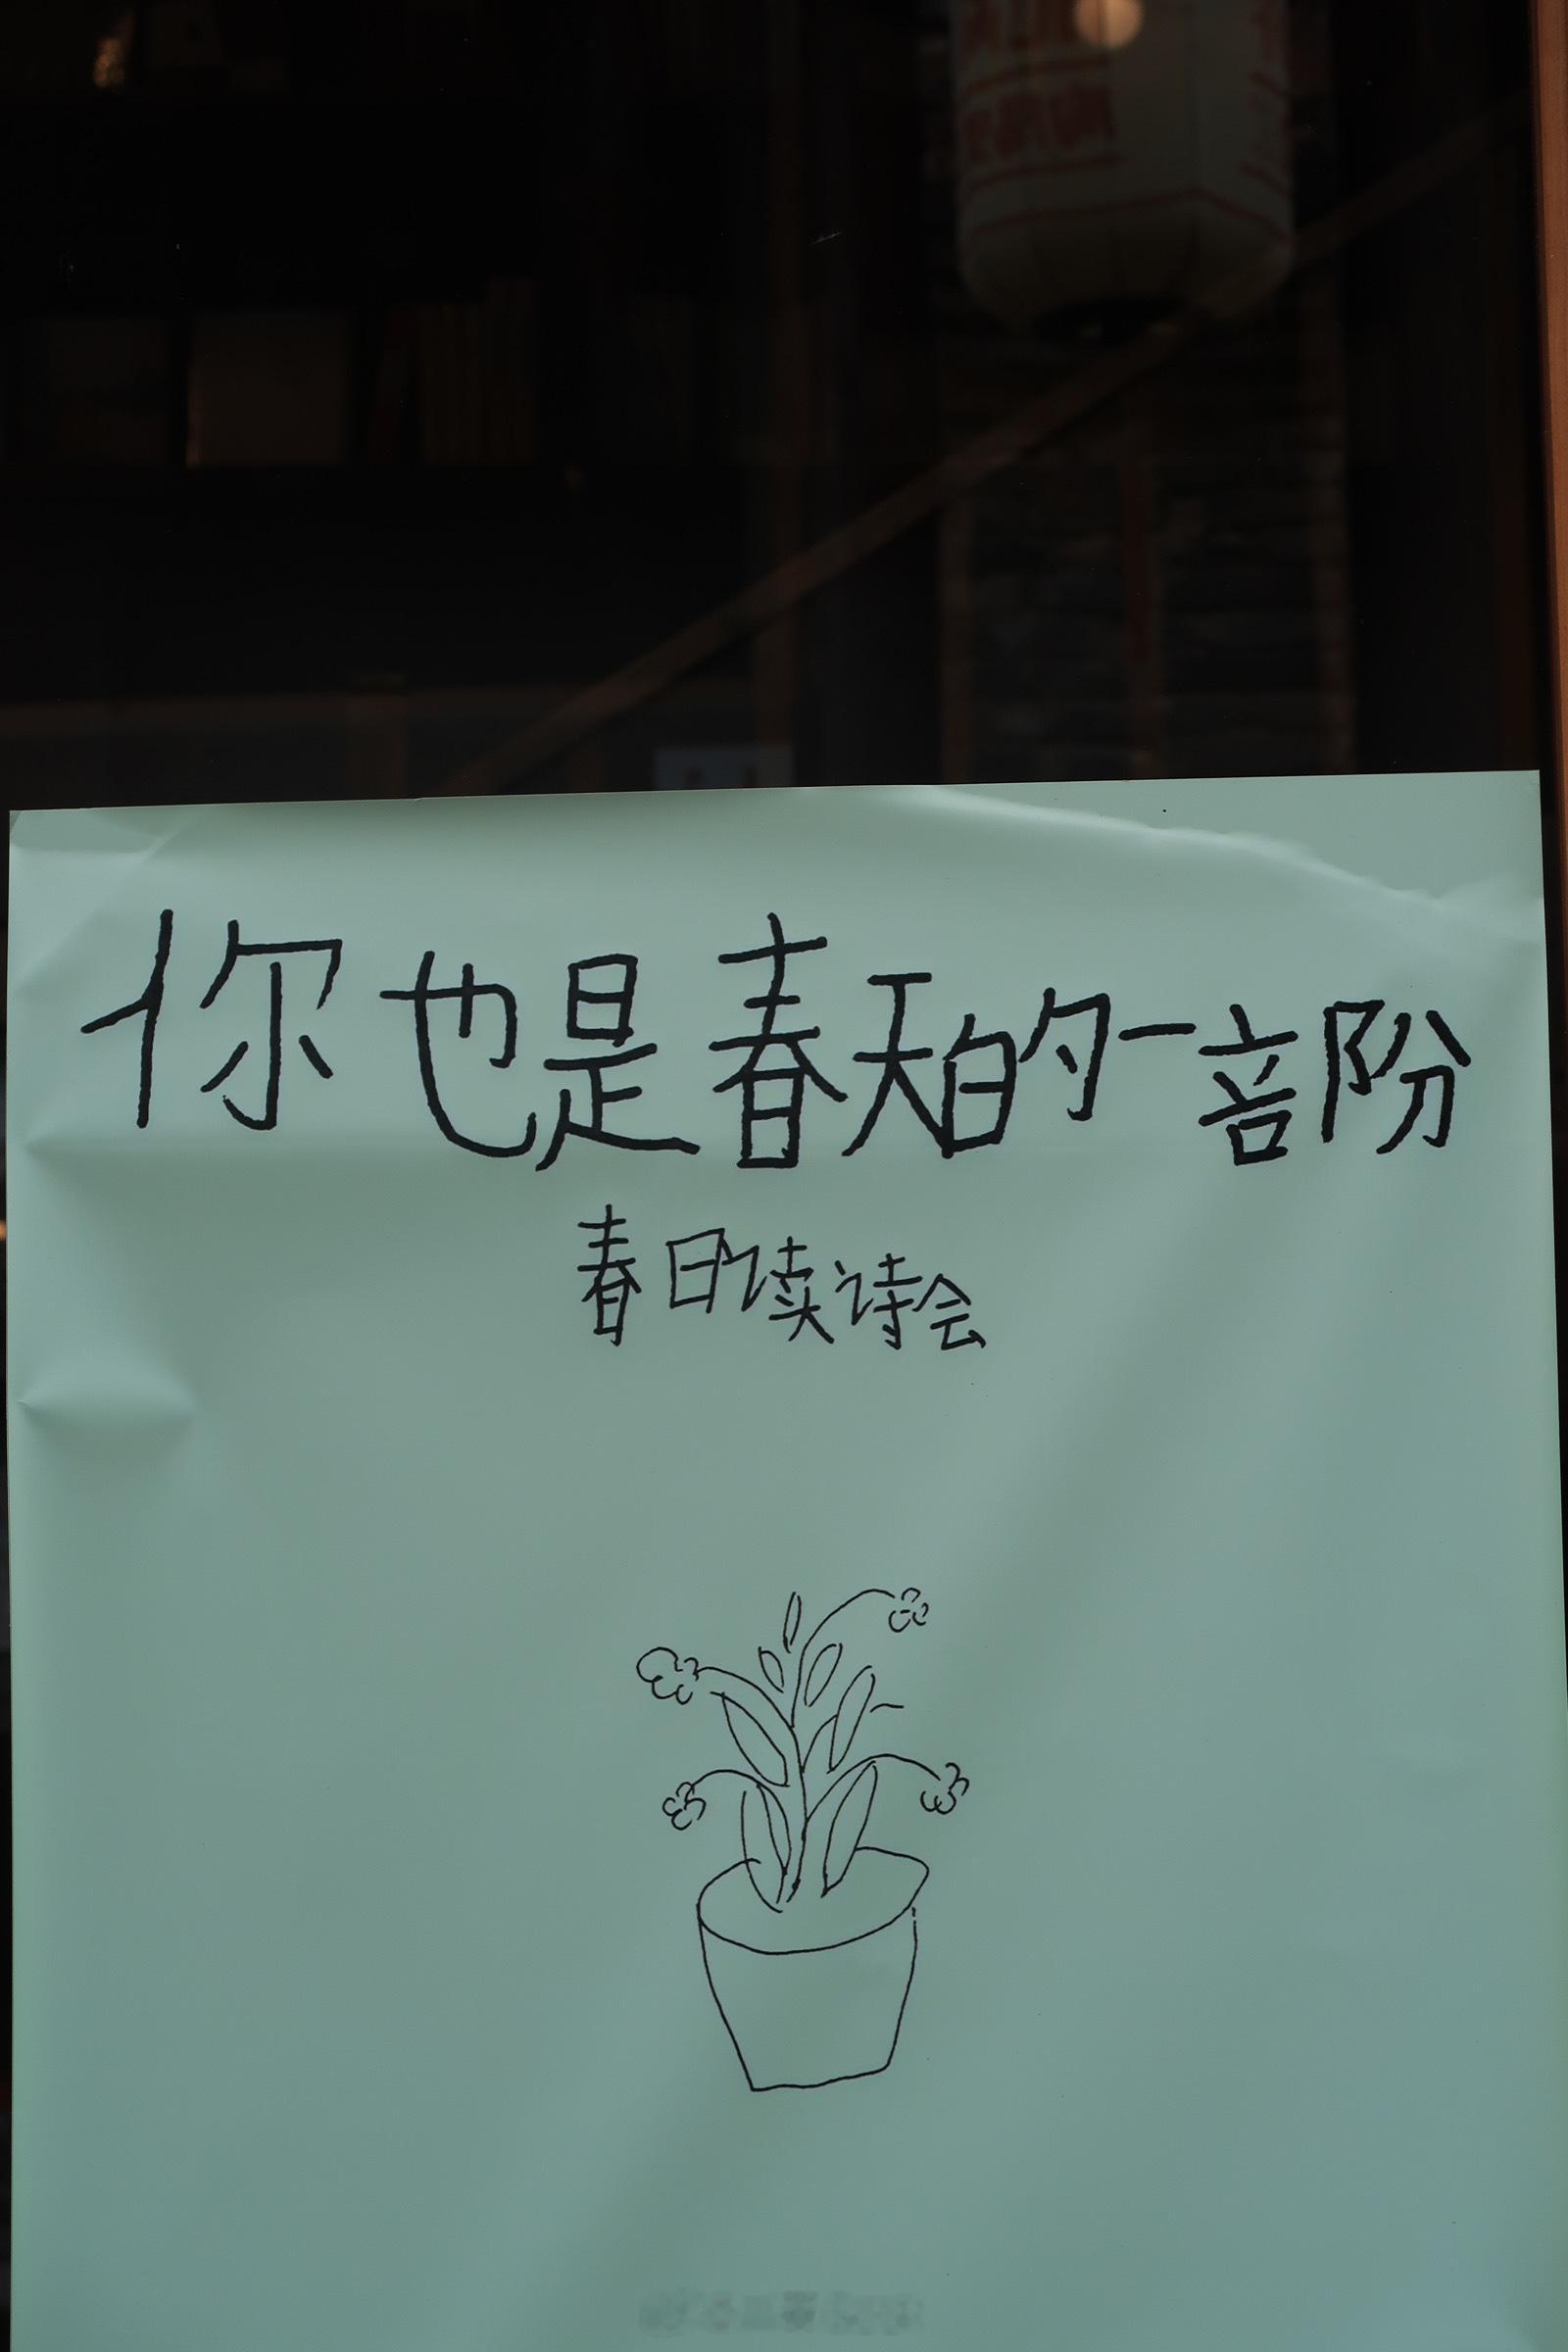 你也是春天的一部份
春日读诗会